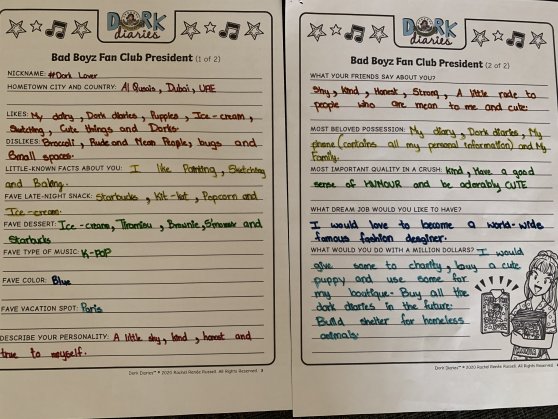 DORK
diaries
Bad Boyz Fan Club President (1 of 2)
NICKNAME: #Dork Lover
HOMETOWN CITY AND COUNTRY: Al Qusais, Dubai, UAE
LIKES: My dairy, Dork diaries, Puppies, Ice-cream,
Sketching, Cute things and Dorks.
DISLIKES: Broccoli, Rude and Mean People, bugs and
Small spaces.
LITTLE-KNOWN FACTS ABOUT YOU: I like Painting, Sketching
and Baking.
FAVE LATE-NIGHT SNACK: Starbucks, Kit-kat, Popcorn and
Ice-cream.
FAVE DESSERT: Ice-cream, Tiramisu, Brownie, and
Starbucks
FAVE TYPE OF MUSIC: K-POP
FAVE COLOR: Blue
FAVE VACATION SPOT: Paris
DESCRIBE YOUR PERSONALITY: A little shy, kind, honest and
true to myself.
Dork Diaries™ © 2020 Rachel Renée Russell. All Rights Reserved. 3
DORK
diaries
Bad Boyz Fan Club President (2 of 2)
WHAT YOUR FRIENDS SAY ABOUT YOU?
Shy, Kind, Honest, Strong, A little rude to
people who are mean to me and cute.
MOST BELOVED POSSESSION: My diary, Dork diaries, My
phone (contains all my personal information) and My
Family.
MOST IMPORTANT QUALITY IN A CRUSH: Kind, Have a good
sense of HUMOUR and be adorably CUTE
WHAT DREAM JOB WOULD YOU LIKE TO HAVE?
I would love to become a world-wide
famous fashion designer.
WHAT WOULD YOU DO WITH A MILLION DOLLARS? I would
give some to charity, buy a cute
puppy and use some for
my boutique. Buy all the
dork diaries in the future.
Build shelter for homeless
animals.
Dork Diaries™ © 2020 Rachel Renée Russell. All Rights Reserved.